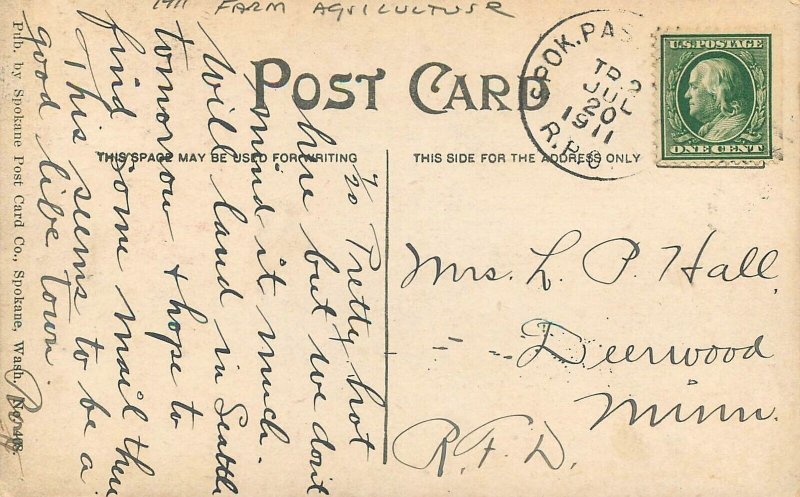 1911 FARM AGRICULTUSR
POST CARD
THIS SPACE MAY BE USED FOR WRITING
THIS SIDE FOR THE ADDRESS ONLY
SPOK. PAS
TR 2
JUL
20
1911
R.P.O.
U.S. POSTAGE
ONE CENT
7/20 Pretty hot
here but we don't
mind it much.
Will land in Seattle
tomorow & hope to
find some mail there
This seems to be a
good live town.
Mrs. L. P. Hall
Deerwood
Minn.
R.F.D.
Pub. by Spokane Post Card Co., Spokane, Wash.